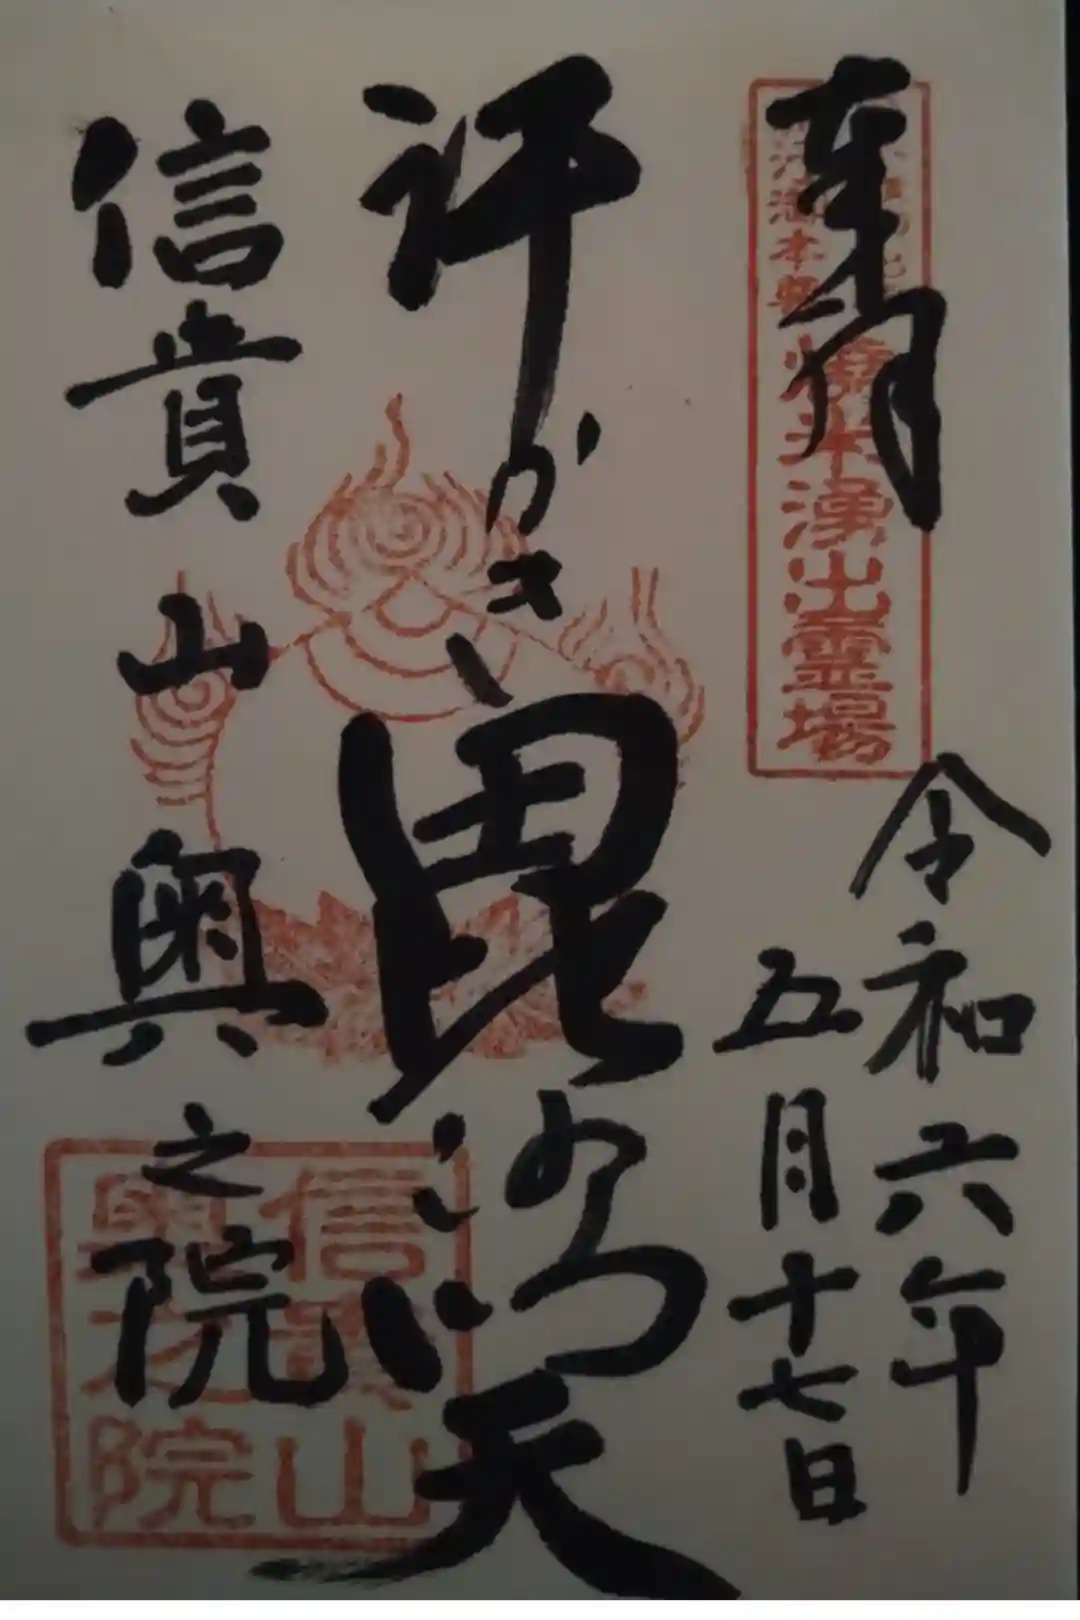 奉拝
燒米湧出霊場
令和六年
五月十七日
汗かき毘沙門天
信貴山奥之院
信貴山
奥之院